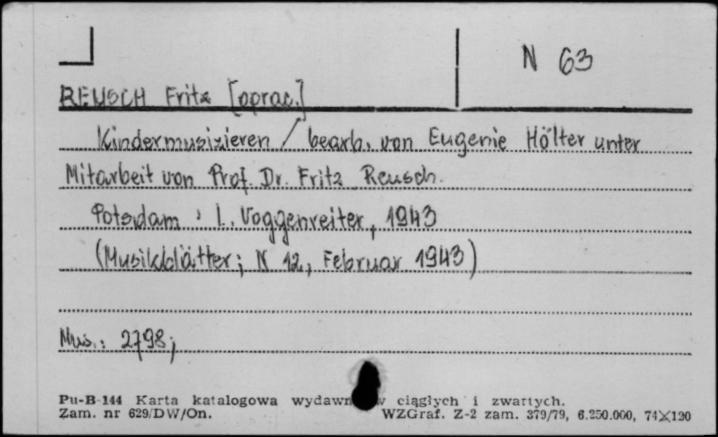 N 63
REUSCH Fritz [oprac.]
Kindermusizieren / bearb. von Eugenie Hölter unter
Mitarbeit von Prof. Dr. Fritz Reusch.
Potsdam : L. Voggenreiter, 1943
(Musikblätter; N 12, Februar 1943)
Mus.: 2798;
Pu-B-144 Karta katalogowa wydawn w ciągłych i zwartych.
Zam. nr 629/DW/On. WZGraf. Z-2 zam. 379/79, 6.250.000, 74X120